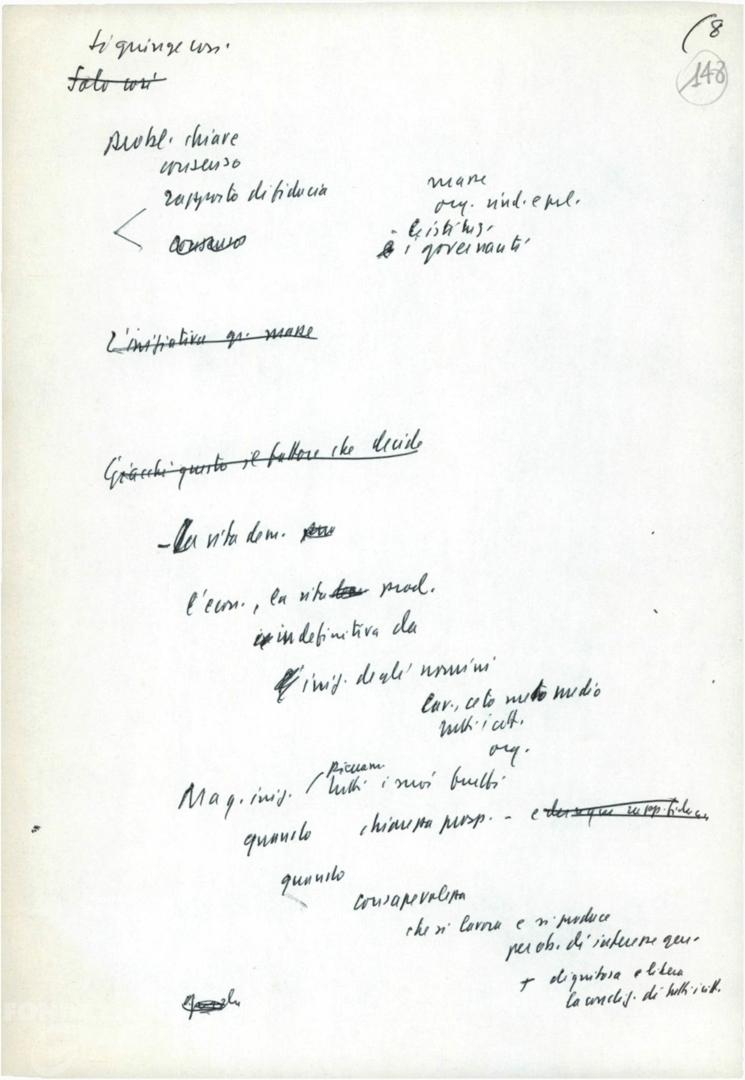 (8
148
Si giunge così.
Solo così
Probl. chiave
consenso
rapporto di fiducia
consenso
masse
org. sind. e pol.
e istituz.
e i governanti
L'iniziativa gr. masse
Giacchè questo il fattore che decide
- La vita dem.
l'econ., la vita prod.
in definitiva da
iniz. degli uomini
lav., ceto medio
tutti i citt.
org.
Mag. iniz. / Richiam.
tutti i suoi frutti
quando chiarezza prosp. - e dunque rapp. fiducia
quando
consapevolezza
che si lavora e si produce
per ob. di interesse gen.
+ dignitosa e libera
la condiz. di tutti i citt.